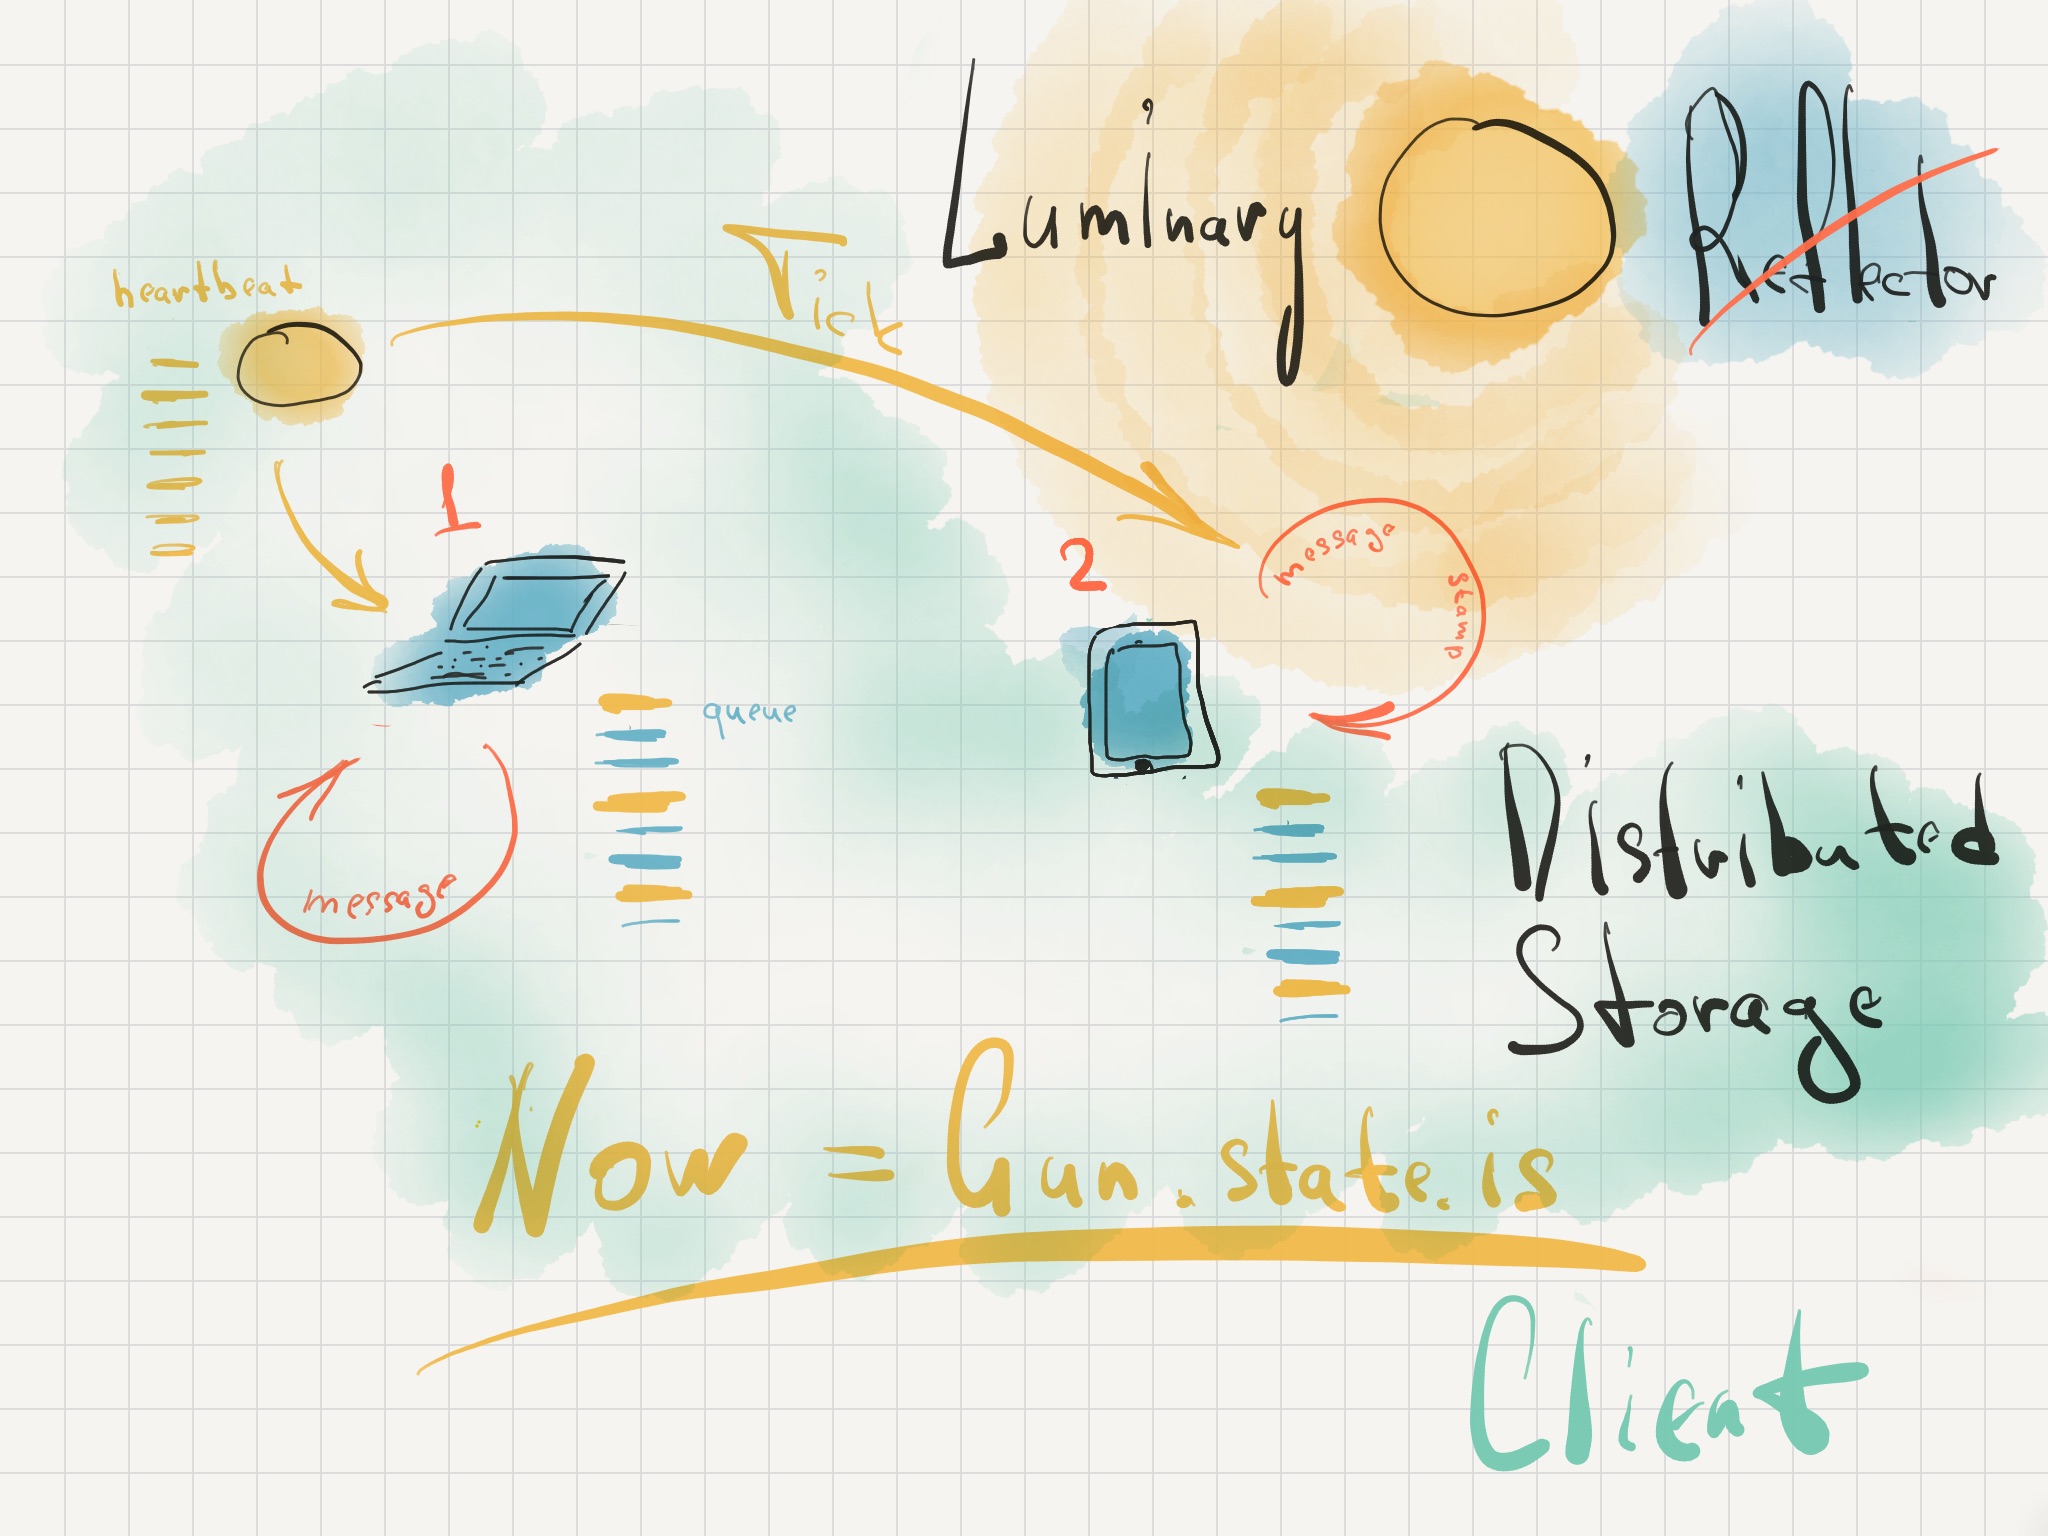 Luminary
Reflector
heartbeat
Tick
1
2
message
stamp
queue
message
Distributed
Storage
Now = Gun.state.is
Client